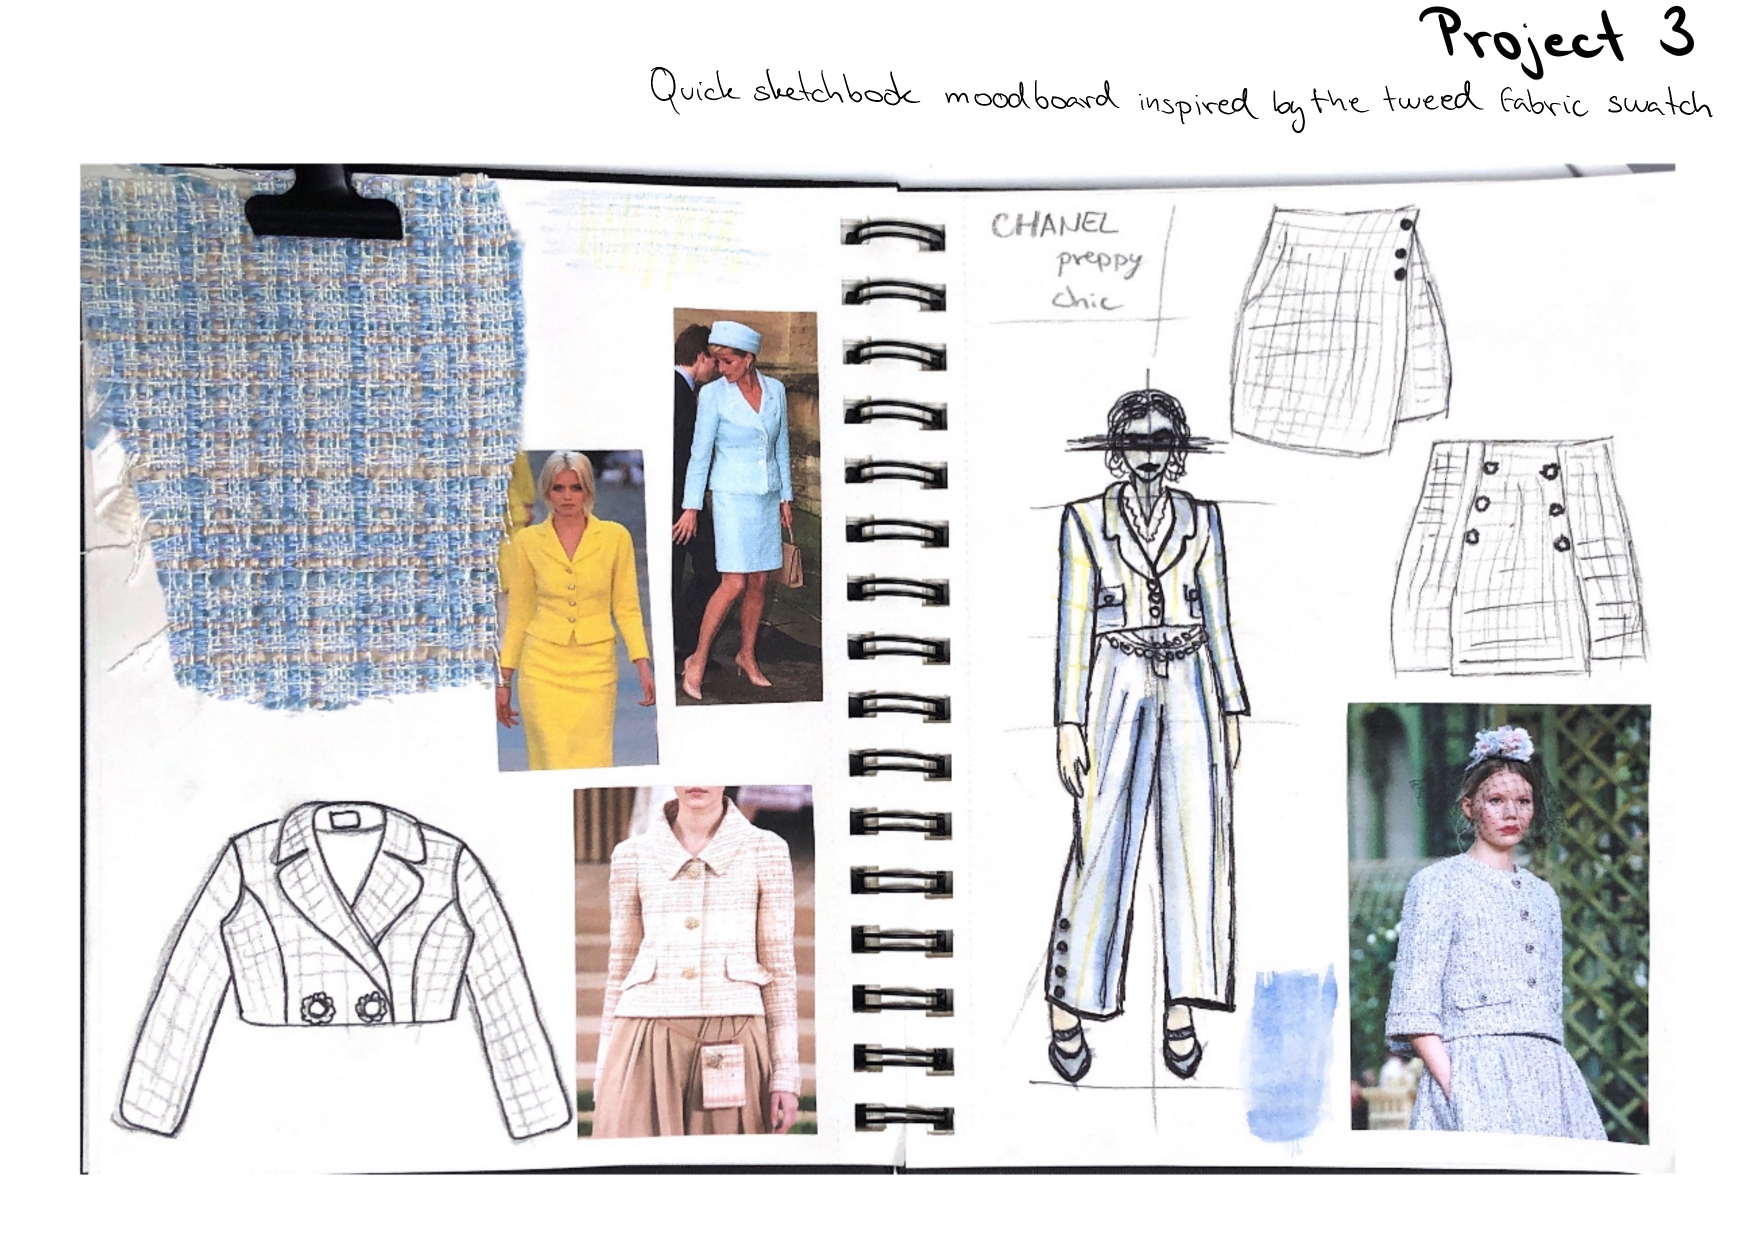 Project 3
Quick sketchbook moodboard inspired by the tweed fabric swatch
CHANEL
preppy
chic